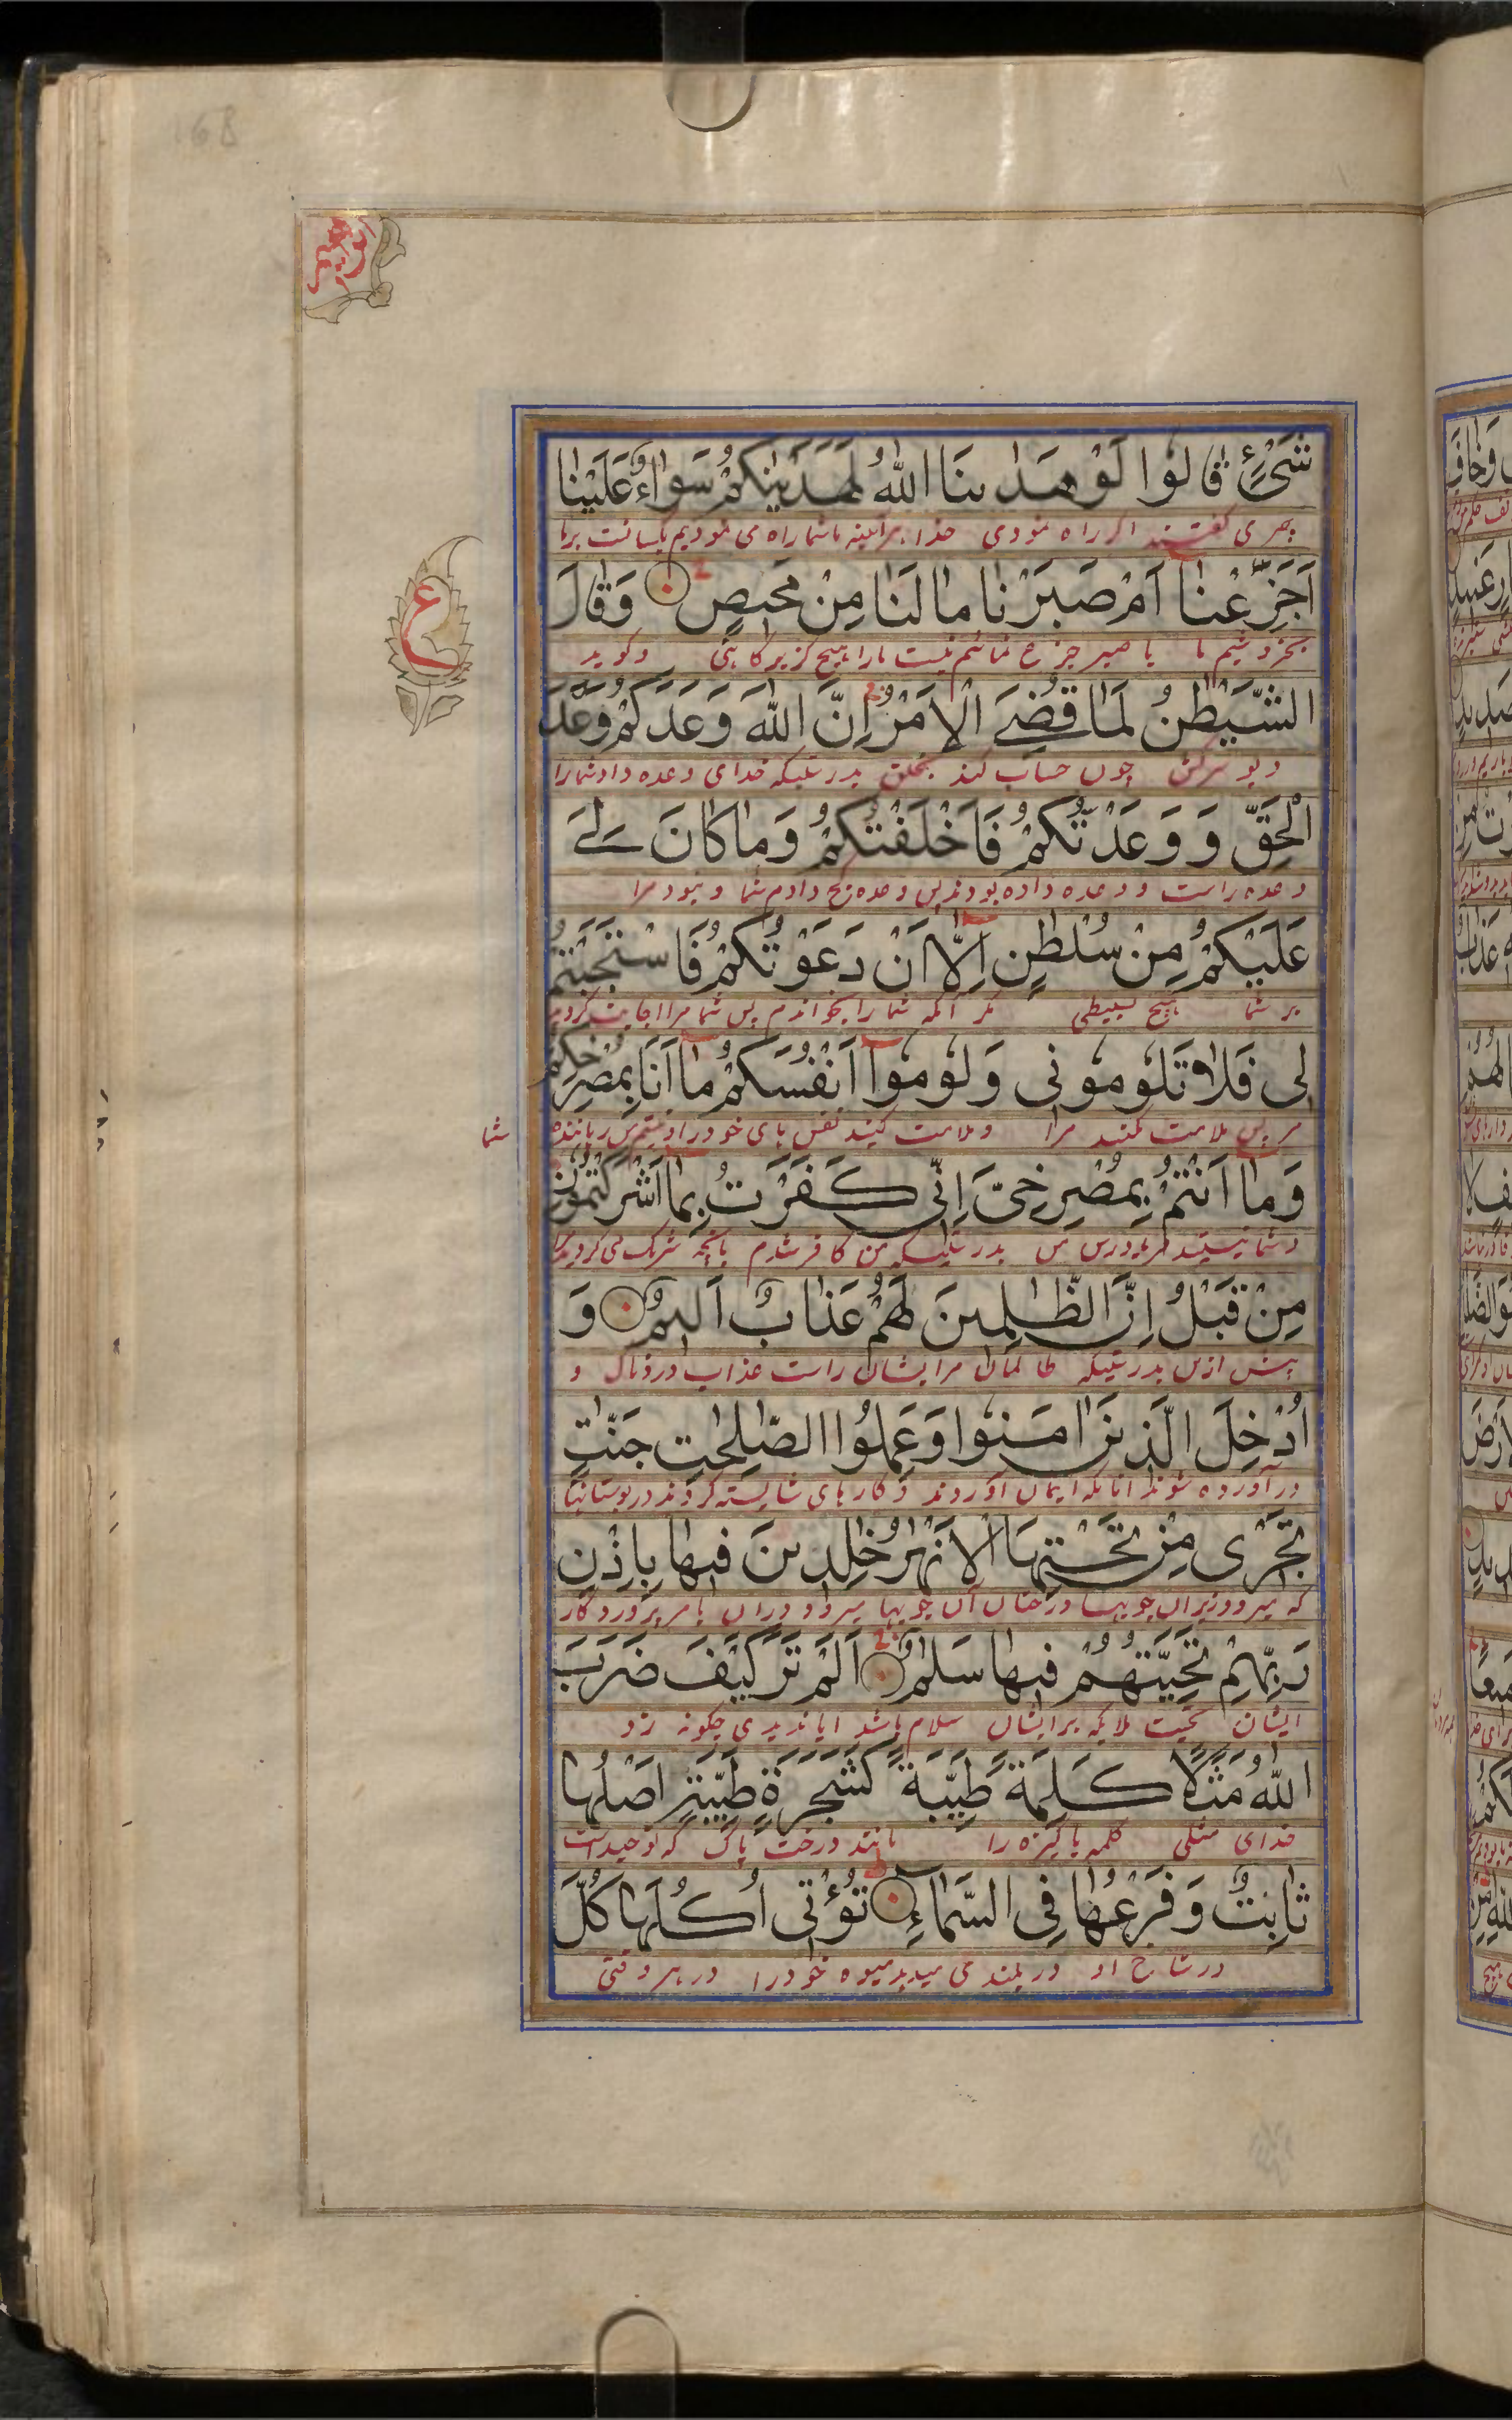 ابرهیم
شَیْءٍ قَالُوا لَوْ هَدٰىنَا اللّٰهُ لَهَدَيْنٰكُمْ سَوَاءٌ عَلَيْنَا
کفتند اکر راه نمودی خدا هرآینه ما شما را راه می نمودیم یکسانست برما
اَجَزِعْنَا اَمْ صَبَرْنَا مَا لَنَا مِنْ مَحيصٍ وَقَالَ
یا صبر نیست مارا هیچ کزیرکاهی وکوید
ع
الشَّيْطٰنُ لَمَّا قُضِیَ الْاَمْرُ اِنَّ اللّٰهَ وَعَدَكُمْ وَعْدَ
دیو سرکش چون حساب کند بدرستیکه خدای وعده داد شمارا
الْحَقِّ وَ وَعَدْتُكُمْ فَاَخْلَفْتُكُمْ وَمَا كَانَ لِیَ
وعده راست و وعده داده بودند پس وعده کج دادم شما و نبود مرا
عَلَيْكُمْ مِنْ سُلْطٰنٍ اِلَّا اَنْ دَعَوْتُكُمْ فَاسْتَجَبْتُمْ
بر شما هیچ مکر آنکه شما را بخواندم پس شما مرا اجابت کردید
لی فَلَا تَلُومُونی وَلُومُوا اَنْفُسَكُمْ مَا اَنَا بِمُصْرِخِكُمْ
پس ملامت مکنید مرا وملامت کنید نفس های خود را نیستم من رهاننده شما
وَمَا اَنْتُمْ بِمُصْرِخِیَّ اِنّی كَفَرْتُ بِمَا اَشْرَكْتُمُونِ
وشما نیستید فریادرس من بدرستیکه من کافر شدم بانچه شریک می کردید
مِنْ قَبْلُ اِنَّ الظّٰلِمينَ لَهُمْ عَذَابٌ اَليمٌ وَ
پیش ازین بدرستیکه ظالمان مرایشان راست عذاب دردناک و
اُدْخِلَ الَّذينَ اٰمَنُوا وَعَمِلُوا الصّٰلِحٰتِ جَنّٰتٍ
درآورده شوند آنانکه ایمان آوردند و کارهای شایسته کردند در بوستانها
تَجْری مِنْ تَحْتِهَا الْاَنْهٰرُ خٰلِدينَ فيهَا بِاِذْنِ
که میرود زیران جویها درختان آن جویها بامر پروردکار
رَبِّهِمْ تَحِيَّتُهُمْ فيهَا سَلٰمٌ اَلَمْ تَرَ كَيْفَ ضَرَبَ
ایشان تحیت ملایکه برایشان سلام باشد ایا ندیدی چکونه زد
اللّٰهُ مَثَلًا كَلِمَةً طَيِّبَةً كَشَجَرَةٍ طَيِّبَةٍ اَصْلُهَا
خدای مثلی کلمه پاکیزه را مانند درخت پاک که توحیدست
ثَابِتٌ وَفَرْعُهَا فِی السَّمَاءِ تُؤْتی اُكُلَهَا كُلَّ
وشاخ او در بلندی میدهد میوه خود را در هر وقتی